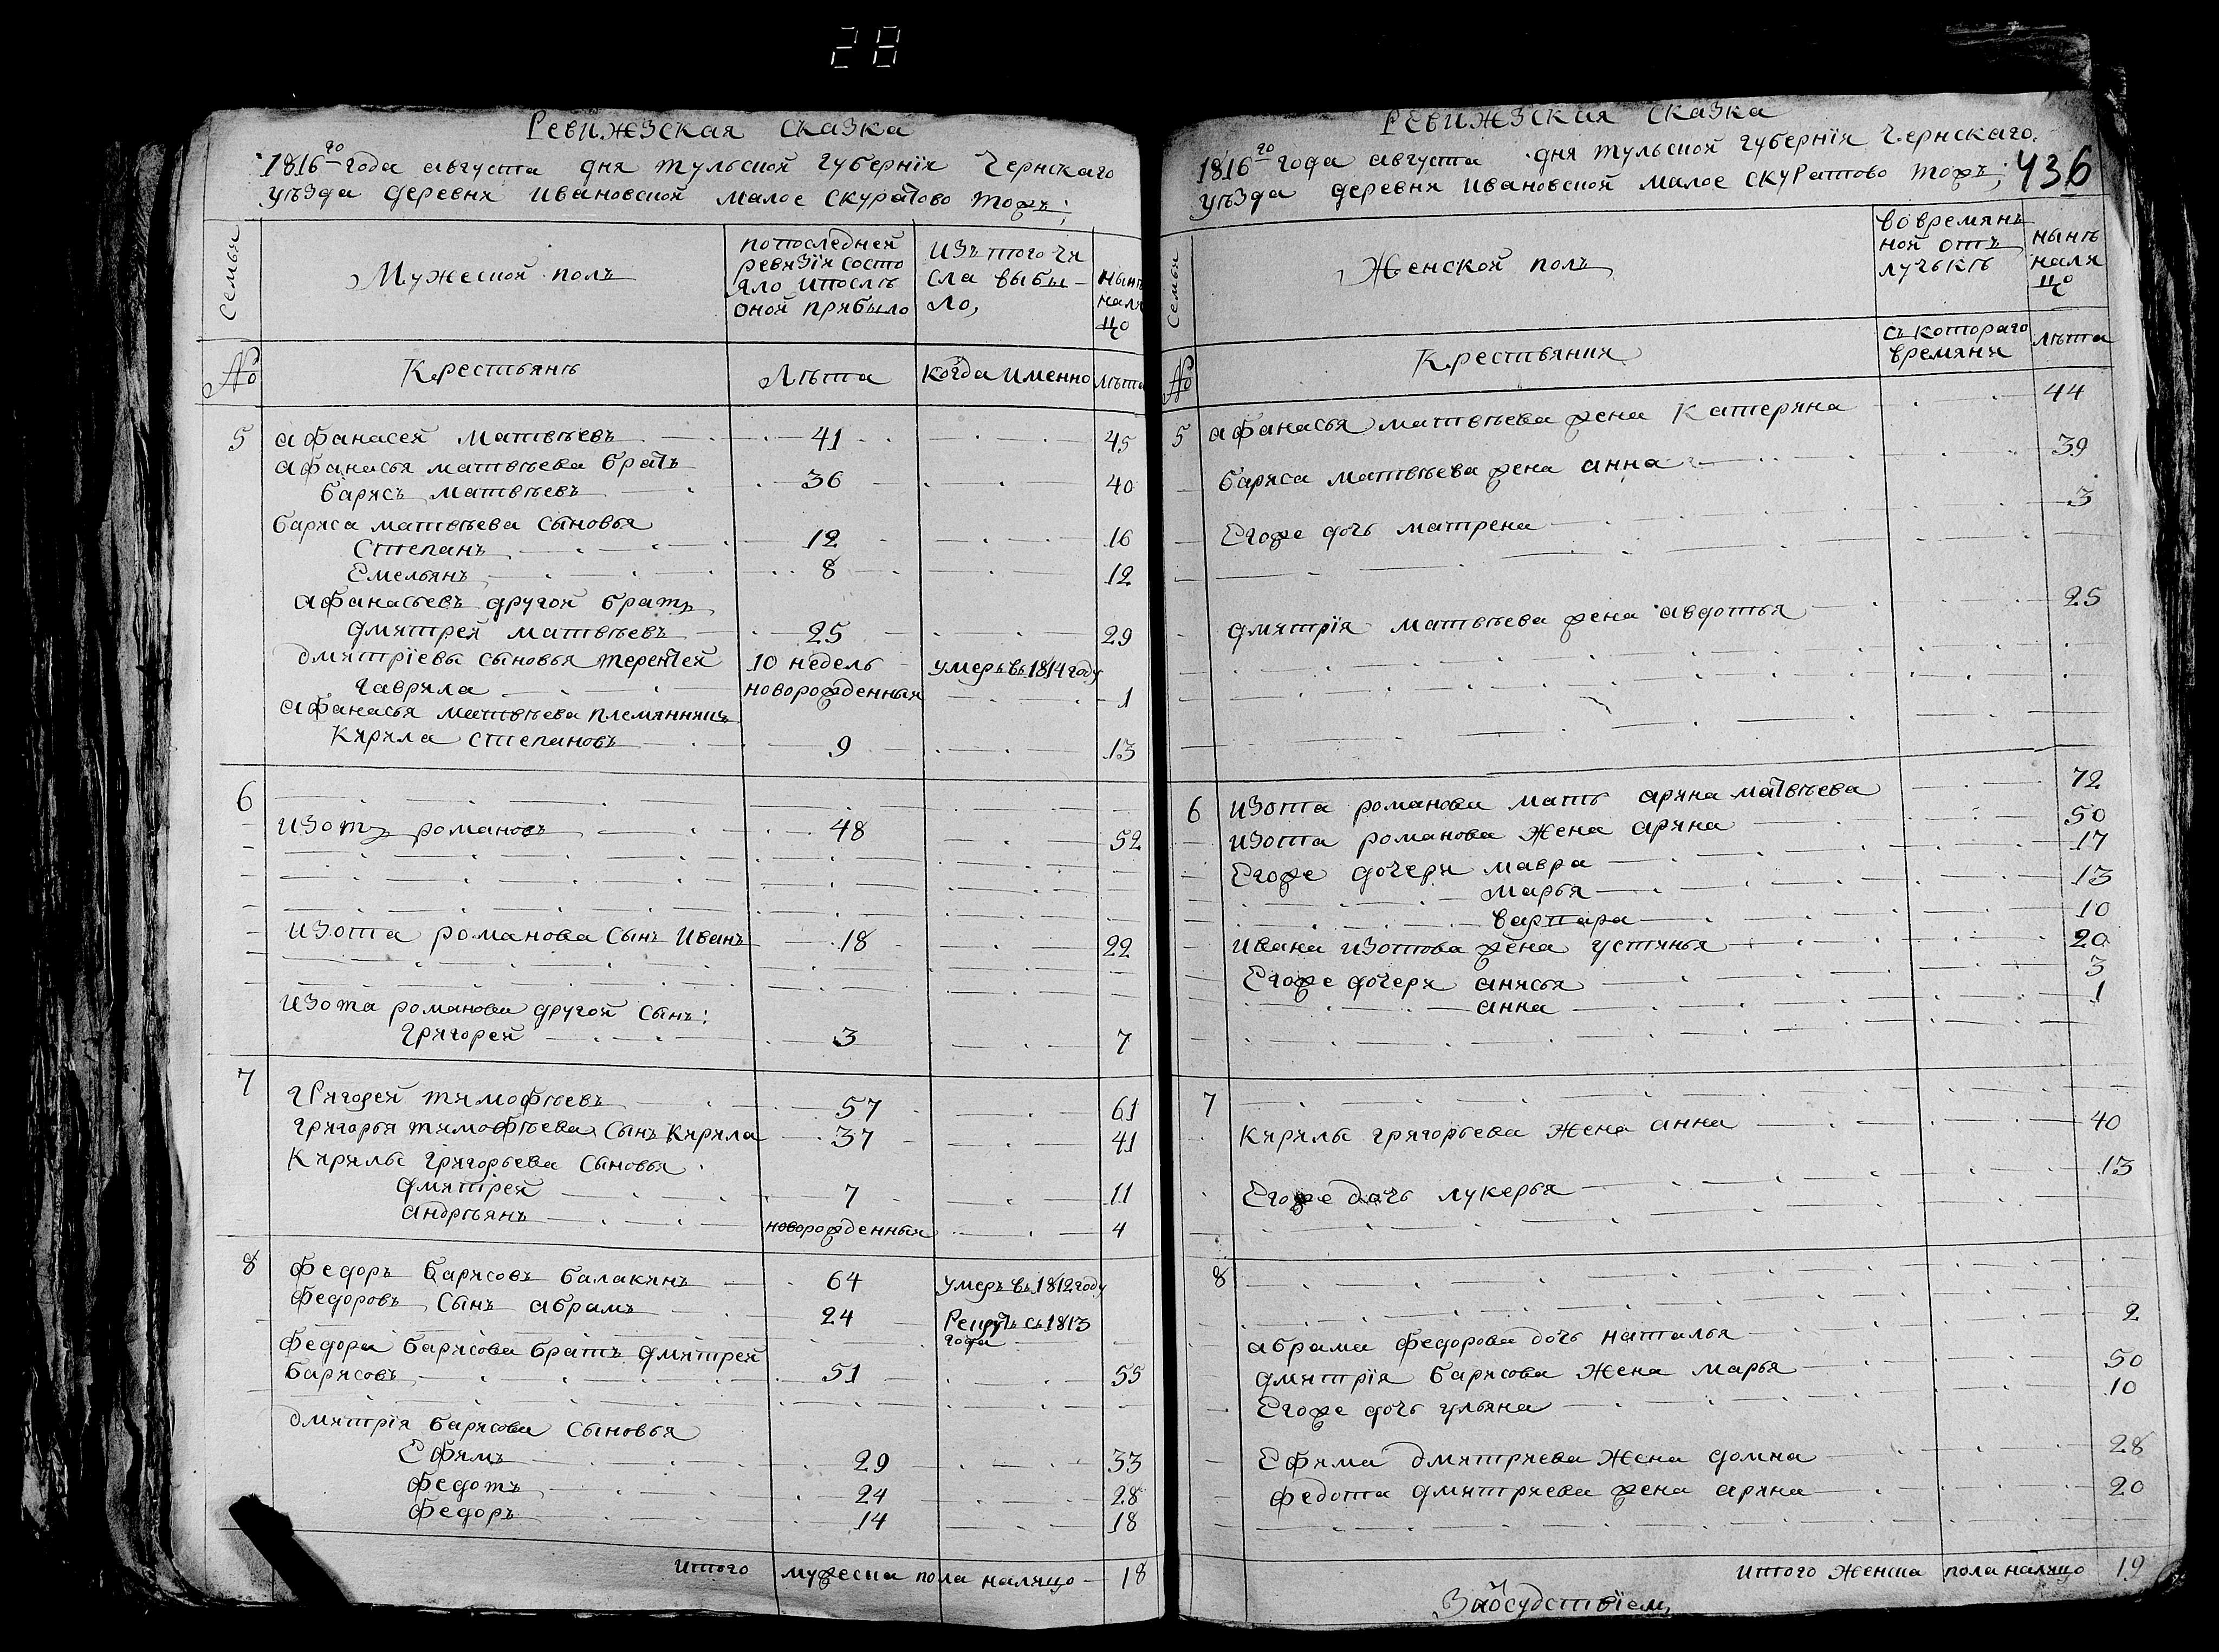 28
Ревижзская сказка
1816го года августа дня тульской губернїи Чернскаго
уѣзда деревни ивановской малое скуратово тожъ;
Семьи
Мужеской полъ
попоследней
ревизїи состо
яло ипослѣ
оной прибыло
Изъ того чи
сла выбы-
ло,
нынѣ
нали
що
№
Крестьянѣ
Лѣта
когда именно
лѣта
5 афанасей матвѣевъ 41 45
афанасья матвѣева братъ
барисъ матвѣевъ 36 40
бариса матвѣева сыновья
Степанъ 12 16
Емельянъ 8 12
афанасьевъ другой братъ
дмитрей матвѣевъ 25 29
дмитрїевы сыновья терентей 10 недель умеръ въ 1814 году
гаврила новорожденный 1
афанасья матвѣева племянникъ
Кирила степановъ 9 13
6
изотъ романовъ 48 52
изота романова сынъ иванъ 18 22
изота романова другой сынъ:
григорей 3 7
7 григорей тимофѣевъ 57 61
григорья тимофѣева сынъ Кирила 37 41
Кирилы григорьева сыновья
дмитрей 7 11
андрѣянъ новорожденный 4
8 федоръ барисовъ балакинъ 64 умеръ въ 1812 году
федоровъ сынъ абрамъ 24 Рекрутъ съ 1813
года
федора барисова братъ дмитрей
барисовъ 51 55
дмитрїя барисова сыновья
Ефимъ 29 33
федотъ 24 28
федоръ 14 18
итого мужеска пола налицо 18
Ревижзская сказка
1816го года августа дня тульской губернїи Чернскаго
уѣзда деревни ивановской малое скуратово тожъ; 436
Семьи
Женской полъ
во времян
ной отъ
лучькѣ
нынѣ
нали
що
№
Крестьянки
съ котораго
времяни
лѣта
5 афанасья матвѣева жена Катерина 44
бариса матвѣева жена анна 39
Егоже дочь матрена 3
дмитрїя матвѣева жена авдотья 25
6 изота романова мать арина матвѣева 72
изота романова жена арина 50
Егоже дочери мавра 17
марья 13
варвара 10
ивана изотова жена устинья 20
Егоже дочери анисья 3
анна 1
7
Кирилы григорьева жена анна 40
Егоже дочь лукерья 13
8
абрама федорова дочь наталья 2
дмитрїя барисова жена марья 50
Егоже дочь ульяна 10
Ефима дмитриева жена домна 28
федота дмитриева жена арина 20
итого женска пола налицо 19